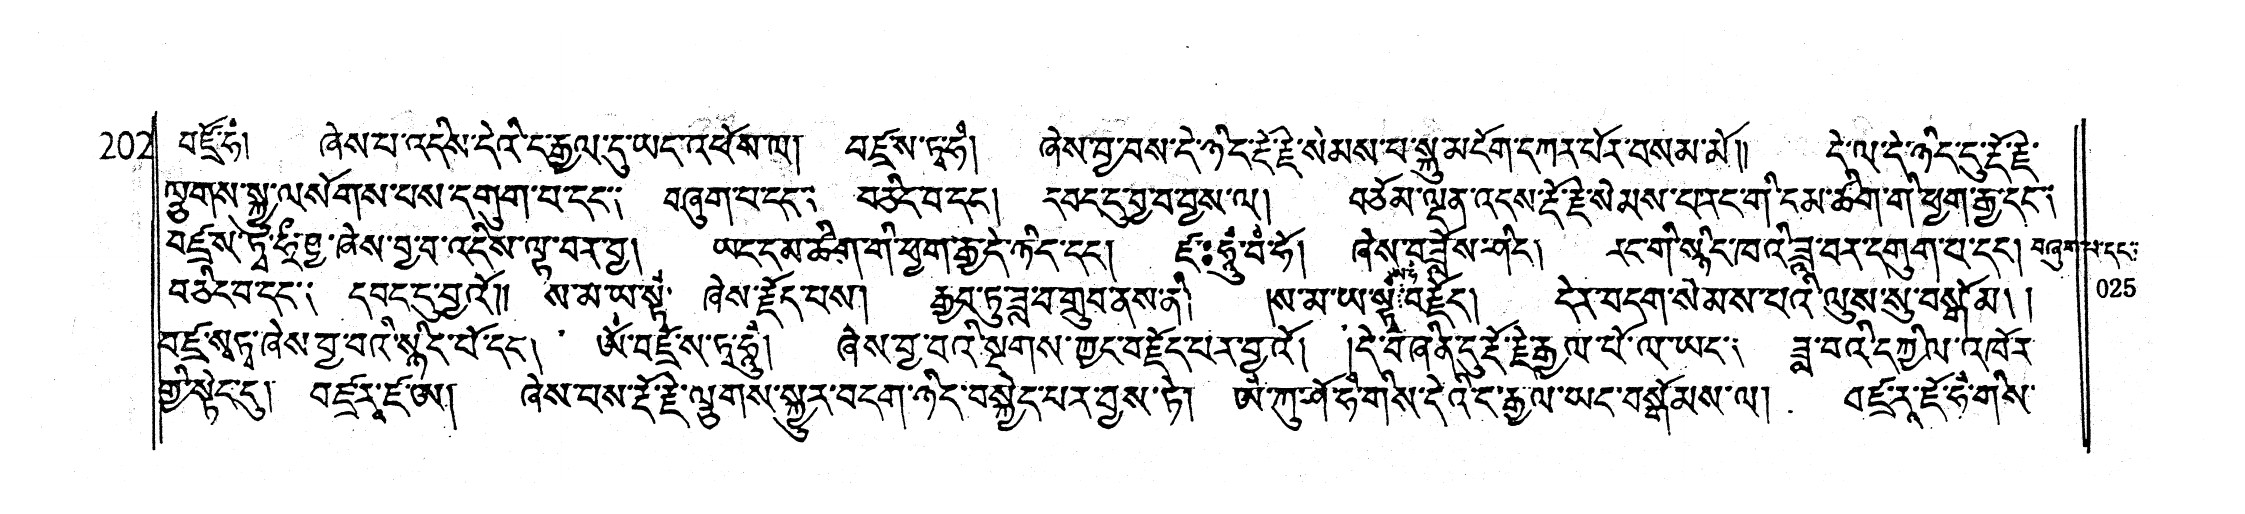 202 བཛྲོ་ཧཾ། ཞེས་པ་འདིས་དེའི་ང་རྒྱལ་དུ་ཡང་འཕོས་ལ། བཛྲས་ཏྭ་ཧཾ། ཞེས་བྱ་བས་དེ་ཉིད་རྡོ་རྗེ་སེམས་པ་སྐུ་མདོག་དཀར་པོར་བསམ་མོ།། དེ་ལ་དེ་ཉིད་དུ་རྡོ་རྗེ་
ལྕགས་སྐྱུ་ལ་སོགས་པས་དགུག་པ་དང་; བཞུག་པ་དང་; བཅིང་བ་དང། དབང་དུ་བྱ་བ་བྱས་ལ། བཅོམ་ལྡན་འདས་རྡོ་རྗེ་སེམས་པའང་གི་དམ་ཚིག་གི་ཕྱག་རྒྱ་དང་;
བཛྲས་ཏྭ་ཧྲྀ་ཤྱ་ཞེས་བྱ་བ་འདིས་ལྟ་བར་བྱ། ཡང་དམ་ཚིག་གི་ཕྱག་རྒྱ་དེ་ཉིད་དང། ཛཿ་ཧཱུཾ་བཾ་ཧོ། ཞེས་བཟླས་ཤིང། རང་གི་སྙིང་ཁའི་ཟླ་བར་དགུག་པ་དང། བཞུག་པ་དང་;
བཅིང་བ་དང་; དབང་དུ་བྱའོ།། ས་མ་ཡ་སྟྭཾ་ ཞེས་རྗོད་པས། རྒྱབ་ཏུ་ཟླ་བ་གྲུབ་ནས་ནི། །ས་མ་ཡ་སྟྭཾ་བརྗོད། དེར་བདག་སེམས་པའི་ལུས་སུ་བསྒོམ། །
025
བཛྲ་སཏྭ་ཞེས་བྱ་བའི་སྙིང་པོ་དང། ཨོཾ་བཛྲ་ས་ཏྭ་ཧཱུཾ། ཞེས་བྱ་བའི་སྔགས་ཀྱང་བརྗོད་པར་བྱའོ། །དེ་བཞིན་དུ་རྡོ་རྗེ་རྒྱལ་པོ་ལ་ཡང་; ཟླ་བའི་དཀྱིལ་འཁོར་
གྱི་སྟེང་དུ། བཛྲ་རཱ་ཛ་ཨ། ཞེས་པས་རྡོ་རྗེ་ལྕགས་སྐྱུར་བདག་ཉིད་བསྐྱེད་པར་བྱས་ཏེ། ཨཾ་ཀུ་ཤོ་ཧཾ་གིས་དེའི་ང་རྒྱལ་ཡང་བསྒོམས་ལ། བཛྲ་རཱ་ཛོ་ཧཾ་གིས་